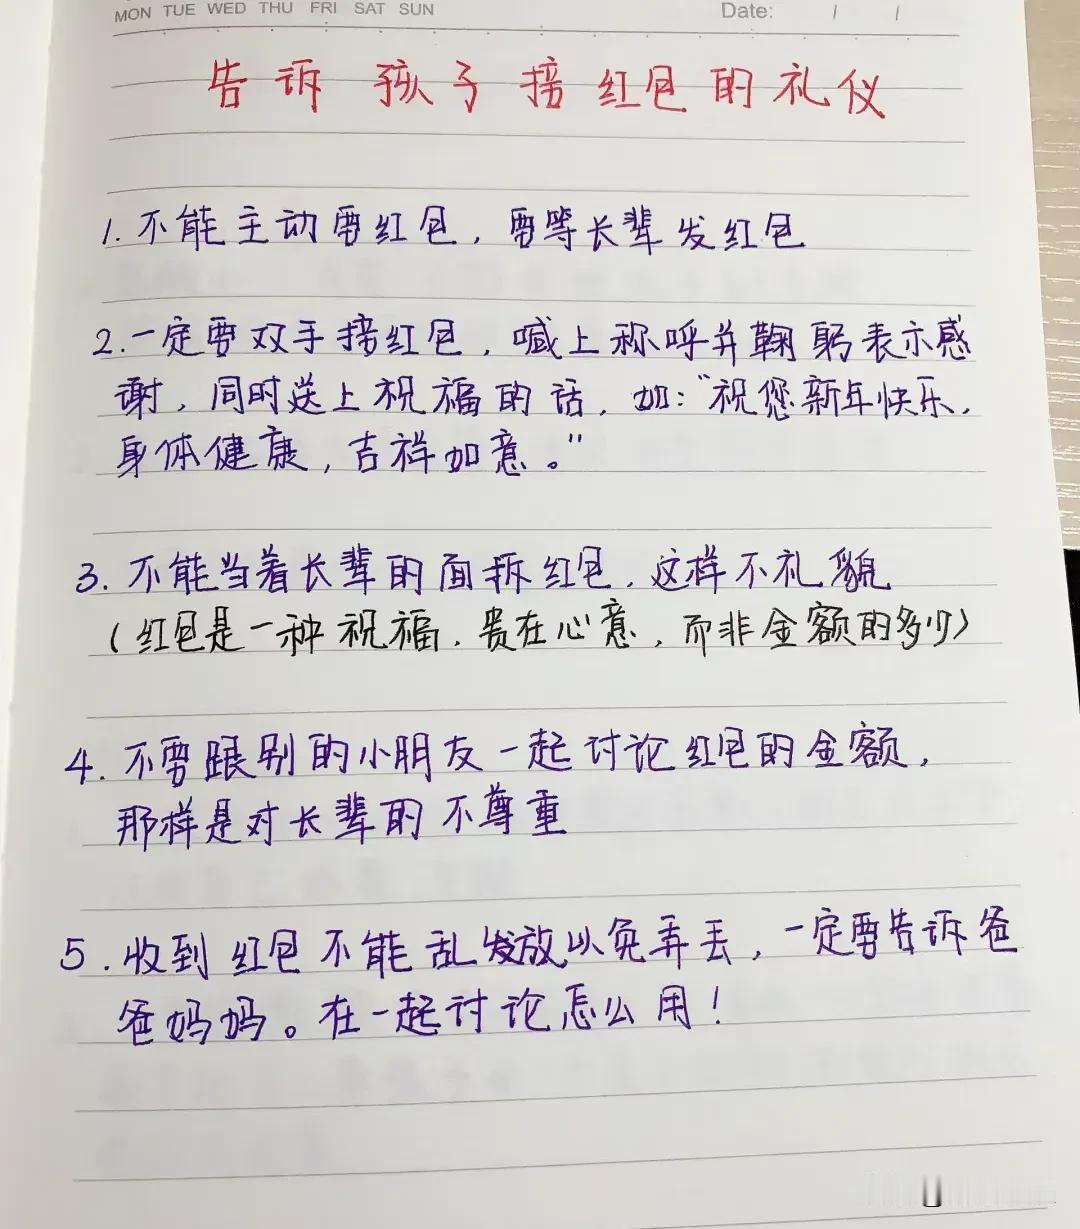 MON TUE WED THU FRI SAT SUN Date: / /
告诉孩子接红包的礼仪
1.不能主动要红包，要等长辈发红包
2.一定要双手接红包，喊上称呼并鞠躬表示感
谢，同时送上祝福的话，如："祝您新年快乐，
身体健康，吉祥如意。"
3.不能当着长辈的面拆红包，这样不礼貌
（红包是一种祝福，贵在心意，而非金额的多少）
4.不要跟别的小朋友一起讨论红包的金额，
那样是对长辈的不尊重
5.收到红包不能乱发放以免弄丢，一定要告诉爸
爸妈妈。在一起讨论怎么用！